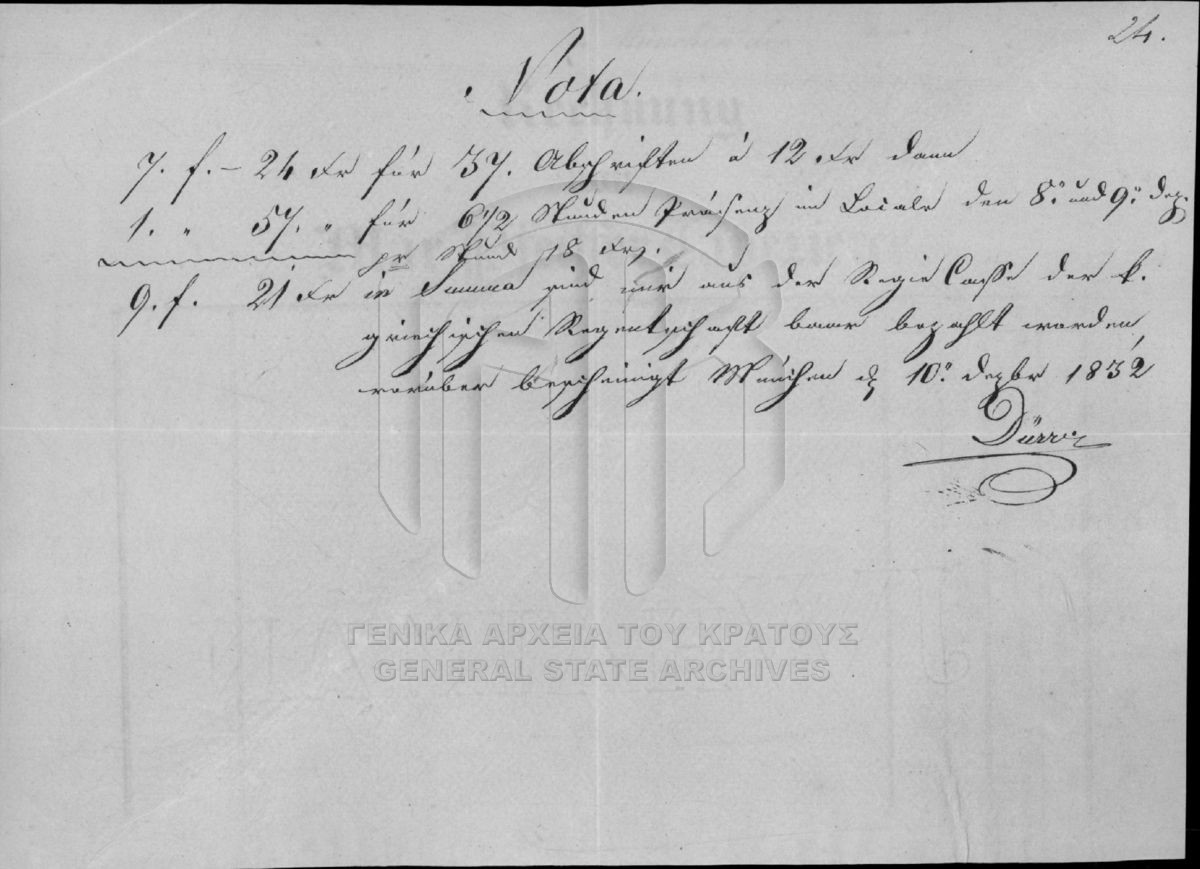 24.
Nota.
7. f. – 24 Xr für 37. Abschriften à 12 Xr dann
1. " 57. " für 6 1/2 Stunden Präsenz im Locale den 8. und 9. Dez.
pr Stund 18 Xr.
9. f. 21 Xr in Summa sind mir aus der Regie Casse der k.
griechischen Regentschaft baar bezahlt worden,
worüber bescheinigt München d 10. Dezbr 1832
Dürr
ΓΕΝΙΚΑ ΑΡΧΕΙΑ ΤΟΥ ΚΡΑΤΟΥΣ
GENERAL STATE ARCHIVES